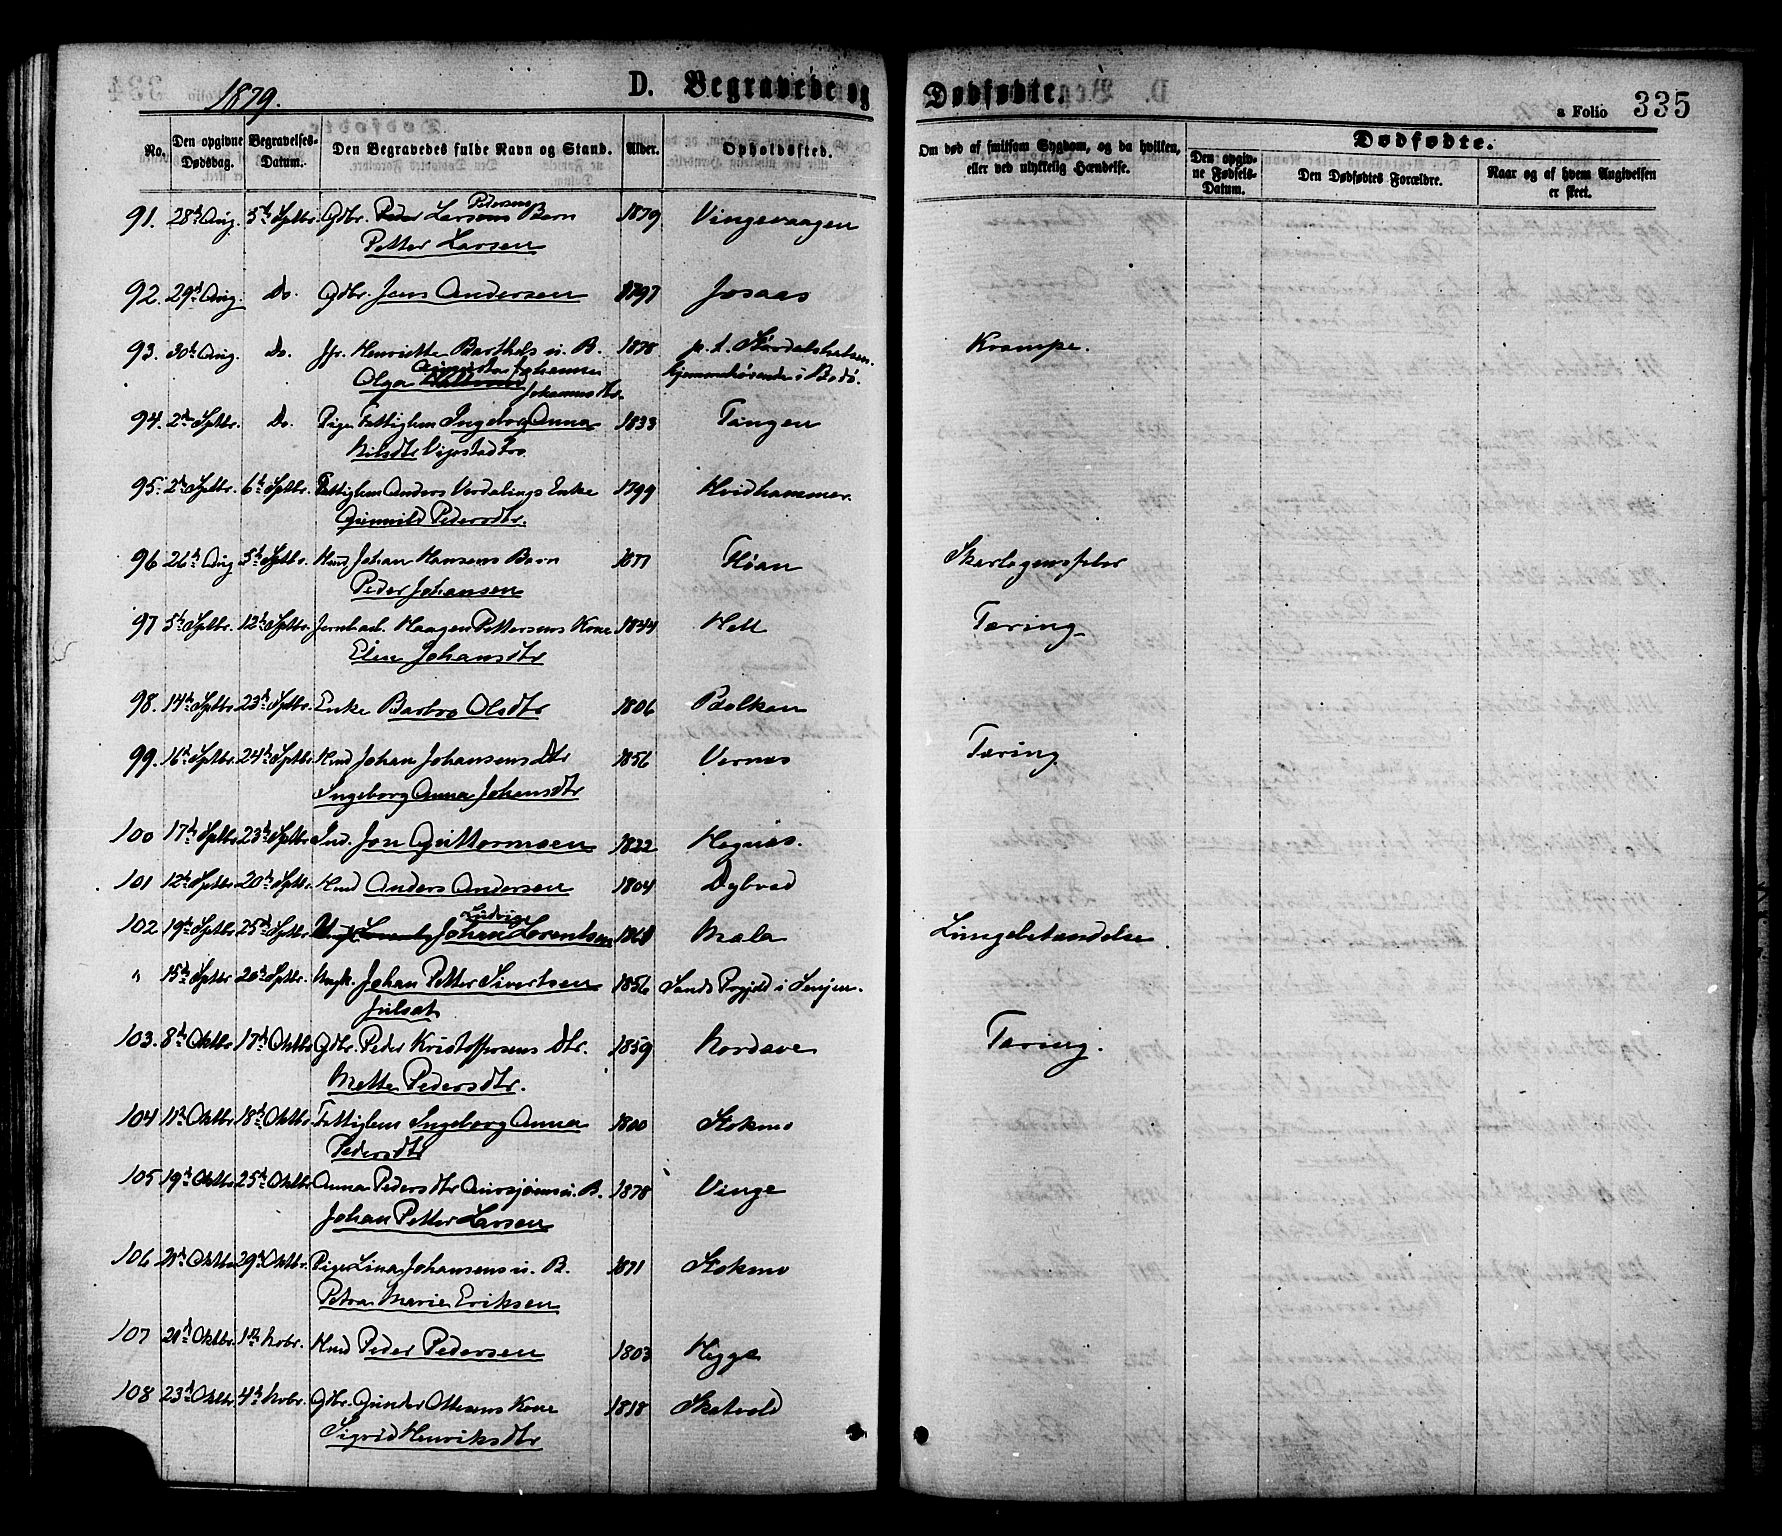 1879.
D. Begravede og Dødfødte.
a Folio 335
No. Den opgivne Dødsdag. Begravelses-Datum. Den Begravedes fulde Navn og Stand. Alder. Opholdssted. Om død af smitsom Sygdom, og da hvilken, eller ved ulykkelig Hændelse. Dødfødte.
Den opgivne Fødsels-Datum. Den Dødfødtes Forældre. Naar og af hvem Angivelsen er skeet.
Petersens
91. 28de Aug. 5te Sptbr. Gdbr. Peder Larsens Barn 1879 Vingevaagen
Petter Larsen
92. 29de Aug. Do. Gdbr. Jens Andersen 1797 Josaas
93. 30te Aug. Do. Henriette Barthels u. B. 1878 p.t. Størdalshalsen Krampe.
Olga Johanna hjemmehørende i Bodø.
Johannesdtr.
94. 2den Sptbr. Do. Pige Fattiglem Ingeborg Anna 1833 Tangen
Nilsdtr Vigestad
95. 2den Sptbr. 6te Sptbr. Fattiglem Anders Verdalings Enke 1799 Hvidhammer.
Gunnild Pedersdtr.
96 26de Aug 5te Sptbr. Hmd Johan Hansens Barn 1877 Fløan Skarlagensfeber
Peder Johansen
97 5te Sptbr. 12te Sptbr. Jernbarb. Haagen Pettersens Kone 1844 Hell Tæring
Elen Johansdtr
98. 14de Sptbr 23de Sptbr. Enke Barbro Olsdtr 1806 Balkan
99. 16de Sptbr. 24de Sptbr. Hmd Johan Johansens Dtr 1856 Vernes Tæring
Ingeborg Anna Johansdtr
100 17de Sptbr 23de Sptbr. Ind. Jon Guttormsen 1822 Hognes.
101 12te Sptbr. 20de Sptbr. Hmd Anders Andersen 1804 Dybvad
Ludvig
102 19de Sptbr 25de Sptbr. Johan Lorentsen 1868 Mæla Lungebetændelse
" 15de Sptbr 20de Sptbr. Ungk. Johan Petter Sivertsen 1856 Sands Prgjeld i Senjen.
Julsat
103. 8de Oktbr. 17de Oktbr. Gdbr. Peder Kristoffersens Dtr. 1859 Kordave Tæring.
Mette Pedersdtr.
104 11te Oktbr. 18de Oktbr. Fattiglem Ingeborg Anna 1800 Stokmo
Pedersdtr
105 19de Oktbr 25de Oktbr. Anna Pedersdtr u. B. 1878 Vinge
Johan Petter Larsen
106 21de Oktbr 29de Oktbr. Pige Lina Johansens u. B. 1871 Stokmo
Petra Marie Eriksen
107 21de Oktbr. 1ste Novbr. Hmd Peder Pedersen 1803 Hegge
108 23de Oktbr 4de Novbr. Gdbr. Gunder Ottesens Kone 1818 Skatvold
Sigrid Henriksdtr